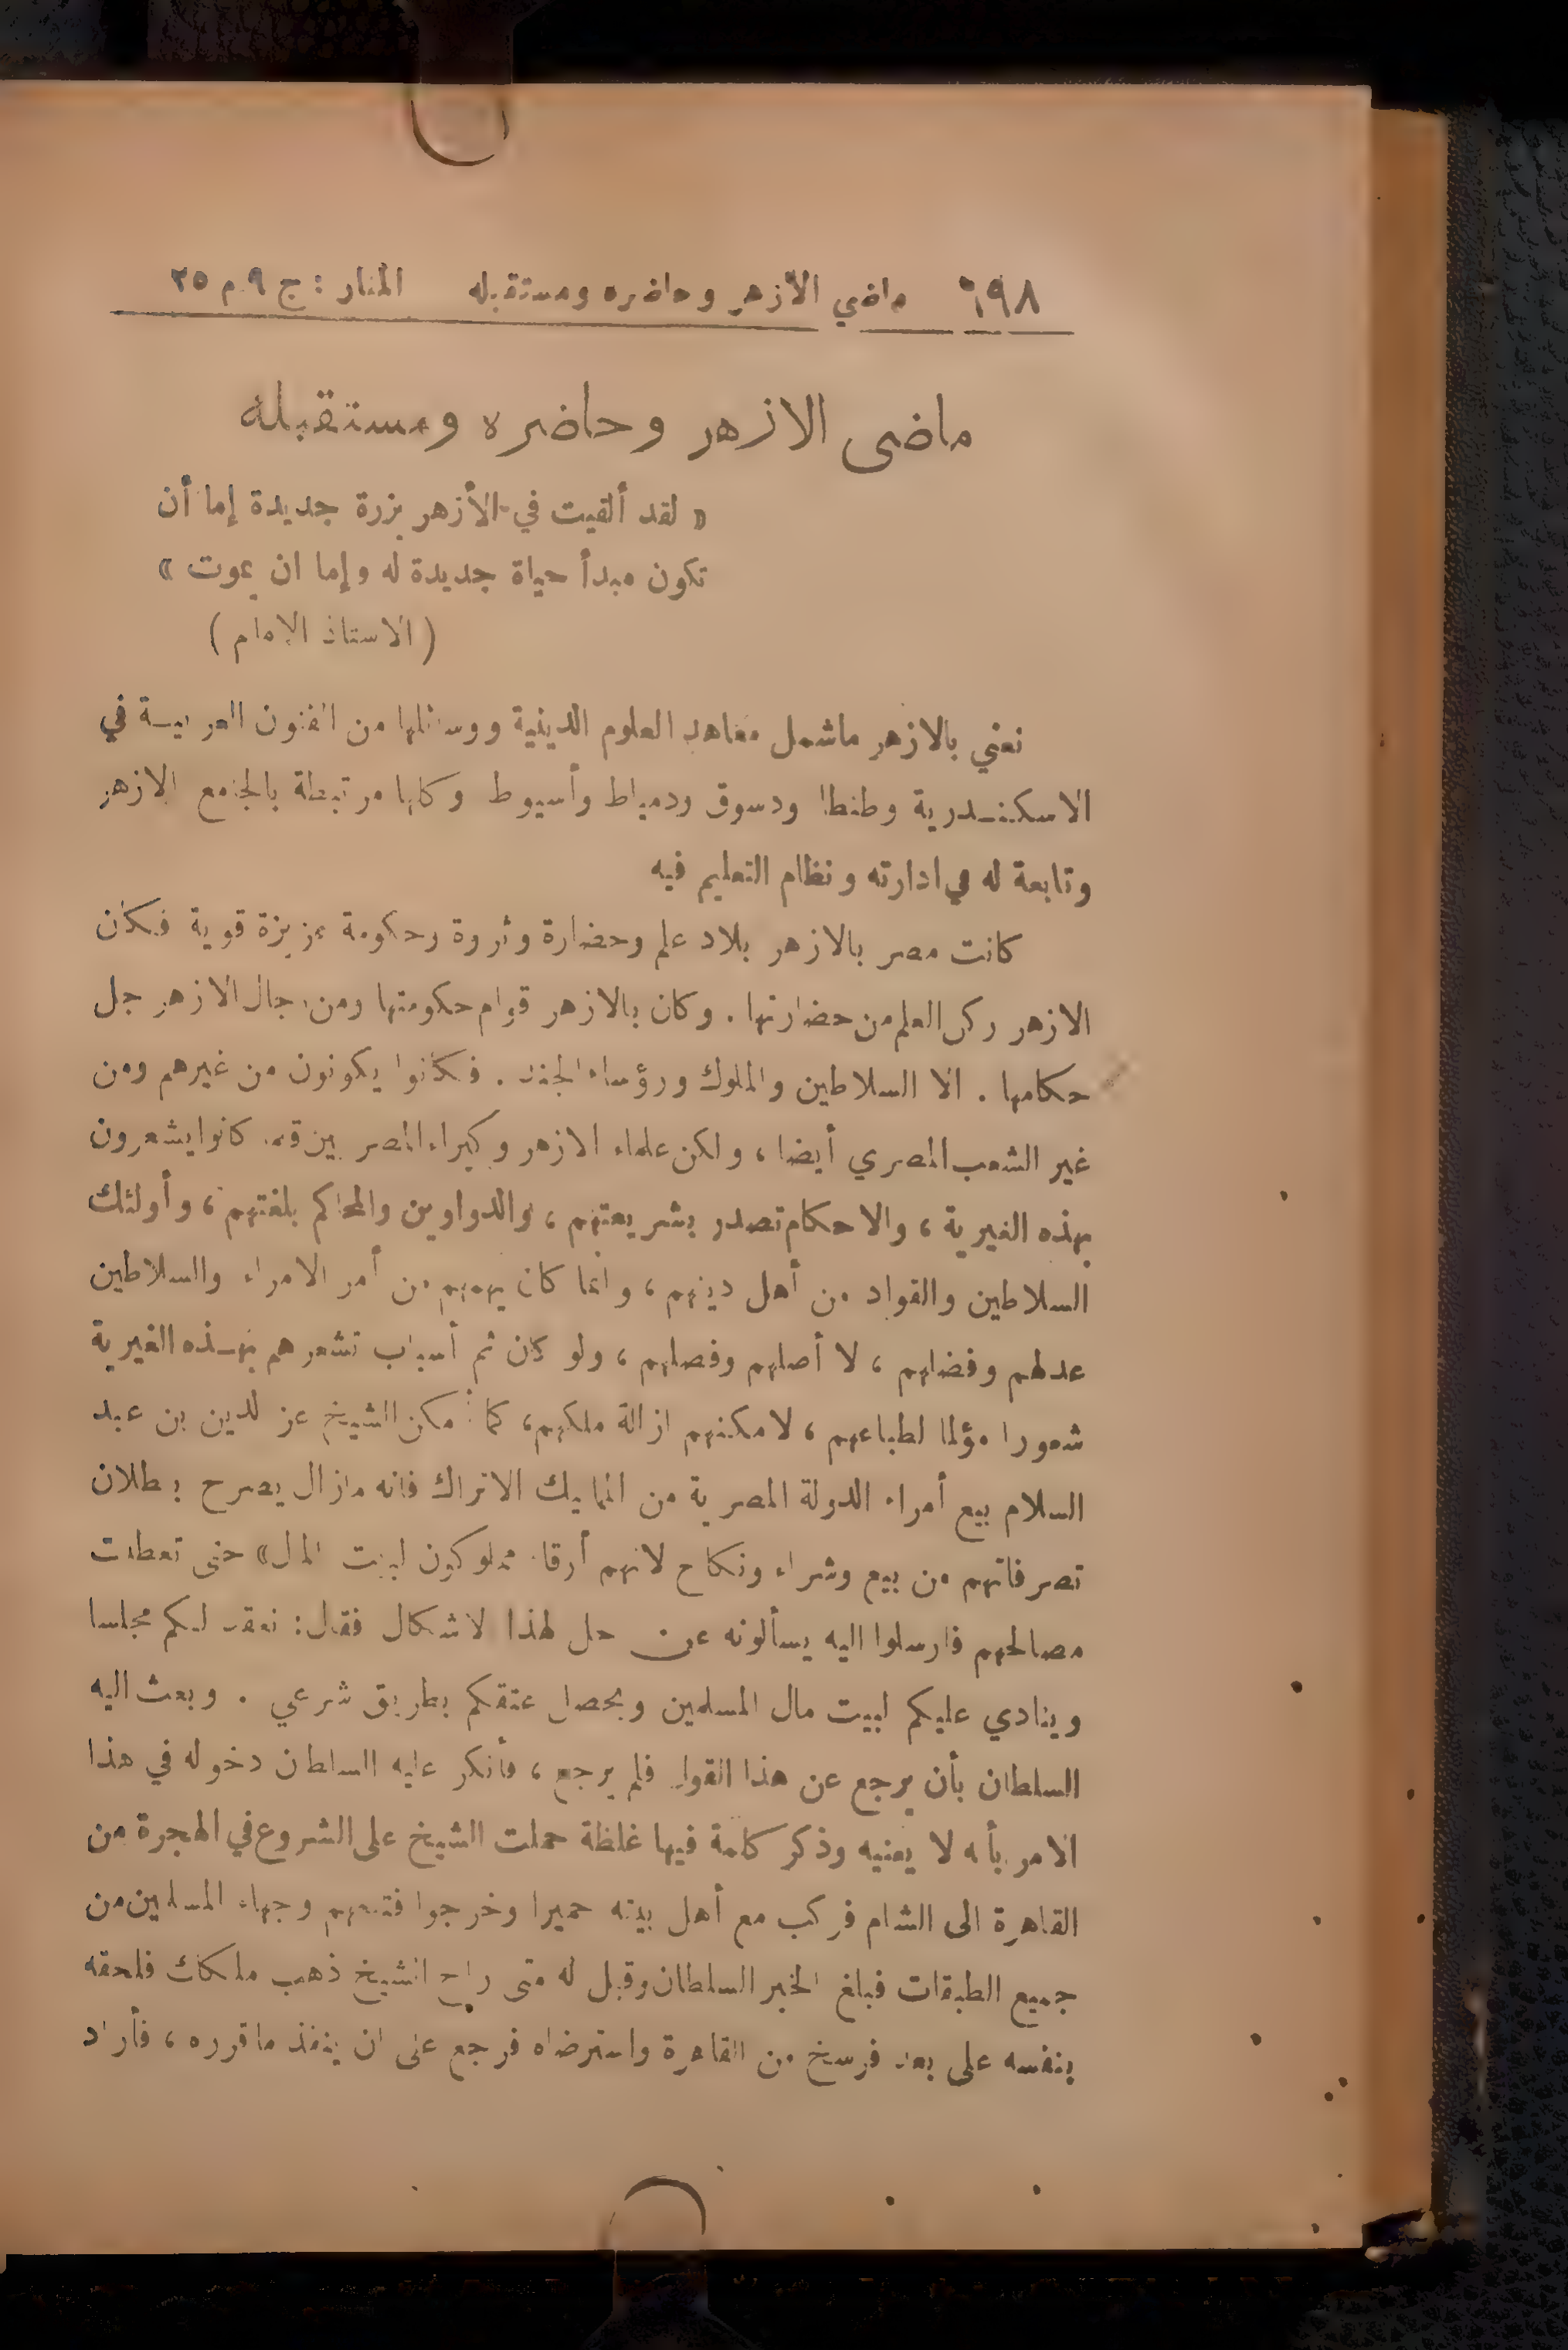 ٦٩٨ ماضي الأزهر وحاضره ومستقبله المنار : ج ٩ م ٢٥
ماضى الازهر وحاضره ومستقبله
« لقد ألقيت في الأزهر بزرة جديدة إما أن
تكون مبدأ حياة جديدة له وإما ان يموت »
( الاستاذ الإمام )
نعني بالازهر ماشمل معاهد العلوم الدينية ووسائلها من الفنون العربية في
الاسكندرية وطنطا ودسوق ودمياط وأسيوط وكلها مرتبطة بالجامع الازهر
وتابعة له في ادارته ونظام التعليم فيه
كانت مصر بالازهر بلاد علم وحضارة وثروة وحكومة عزيزة قوية فكان
الازهر ركن العلم من حضارتها . وكان بالازهر قوام حكومتها ومن رجال الازهر جل
حكامها . الا السلاطين والملوك ورؤساء الجند . فكانوا يكونون من غيرهم ومن
غير الشعب المصري أيضا ، ولكن علماء الازهر وكبراء المصريين قلما كانوا يشعرون
بهذه الغيرية ، والاحكام تصدر بشريعتهم ، والدواوين والمحاكم بلغتهم ، وأولئك
السلاطين والقواد من أهل دينهم ، وانما كان يهمهم من أمر الامراء والسلاطين
عدلهم وفضلهم ، لا أصلهم وفصلهم ، ولو كان ثم أسباب تشعرهم بهذه الغيرية
شعورا مؤلما لطباعهم ، لامكنهم ازالة ملكهم ، كما أمكن الشيخ عز الدين بن عبد
السلام بيع أمراء الدولة المصرية من المماليك الاتراك فانه مازال يصرح ببطلان
تصرفاتهم من بيع وشراء ونكاح لانهم أرقاء مملوكون لبيت المال» حتى تعطلت
مصالحهم فارسلوا اليه يسألونه عن حل لهذا الاشكال فقال : نعقد لكم مجلسا
وينادي عليكم لبيت مال المسلمين ويحصل عتقكم بطريق شرعي . وبعث اليه
السلطان بأن يرجع عن هذا القول فلم يرجع ، فأنكر عليه السلطان دخوله في هذا
الامر بأنه لا يعنيه وذكر كلمة فيها غلظة حملت الشيخ على الشروع في الهجرة من
القاهرة الى الشام فركب مع أهل بيته حميرا وخرجوا فتبعهم وجهاء المسلمين من
جميع الطبقات فبلغ الخبر السلطان وقيل له متى راح الشيخ ذهب ملكك فلحقه
بنفسه على بعد فرسخ من القاهرة واسترضاه فرجع على ان ينفذ ماقرره ، فأراد